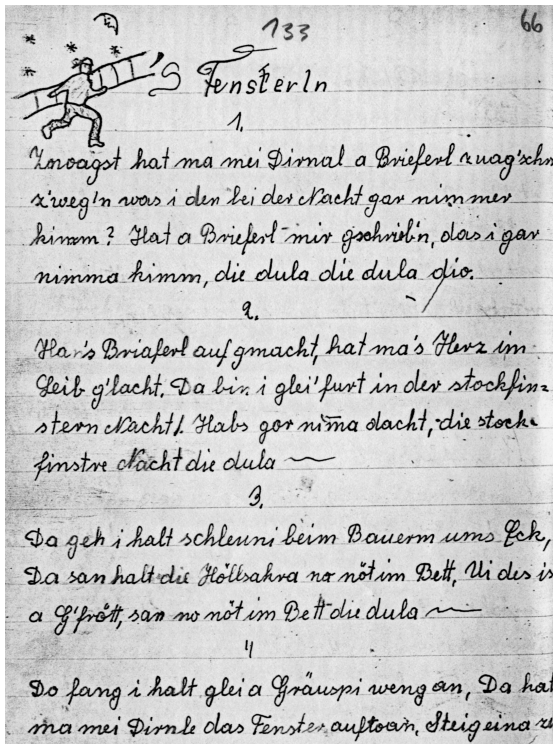 133
66
's Fensterln
1.
Znoagst hat ma mei Dirnal a Brieferl zuag'schn
z'weg'n was i den bei der Nacht gar nimmer
kimm? Hat a Brieferl mir gschrieb'n, das i gar
nimma kimm, die dula die dula dio.
2.
Han's Briaferl aufgmacht, hat ma's Herz im
Leib g'lacht. Da bin i glei' furt in der stockfin=
stern Nacht. Habs gor nima dacht, die stock-
finstre Nacht die dula
3.
Da geh i halt schleuni beim Bauerm ums Eck,
Da san halt die Höllsakra no nöt im Bett, Ui des is
a G'frött, san no nöt im Bett die dula
4
Do fang i halt glei a Gräuspi weng an, Da hat
ma mei Dirnle das Fenster auftoan, Steig eina